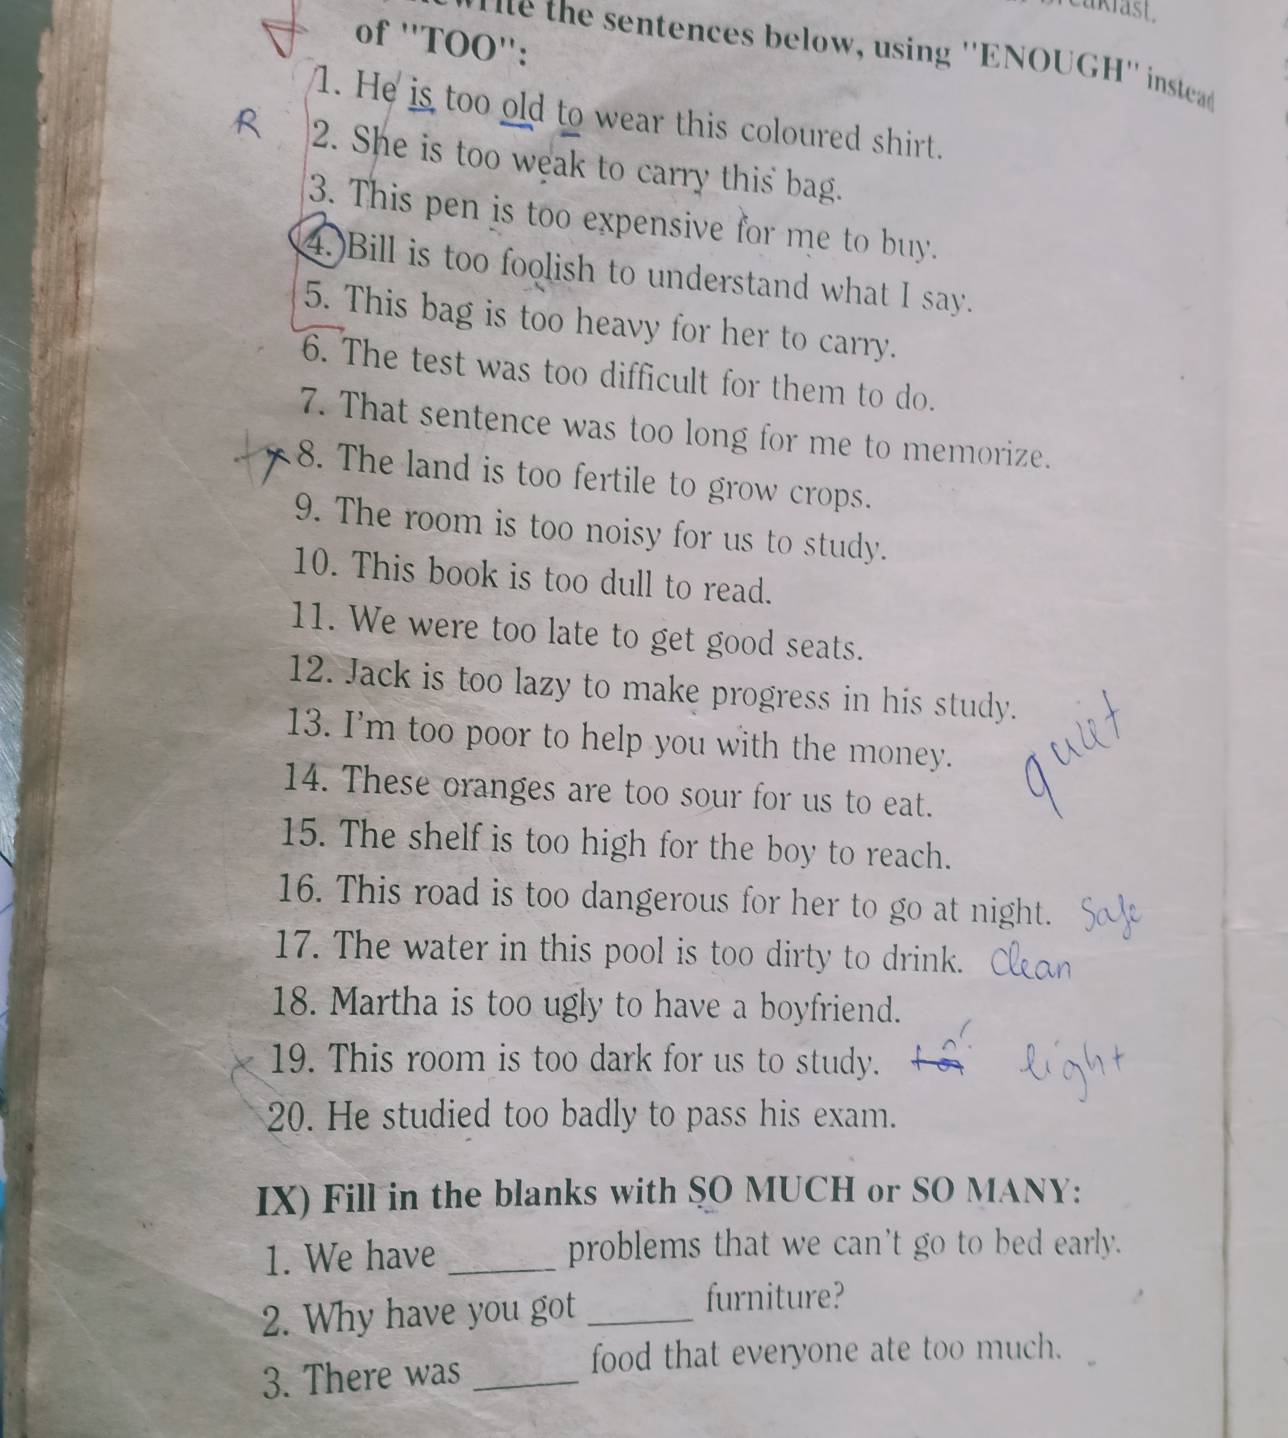 the sentences below, using "ENOUGH" instead
of "TOO":
1. He is too old to wear this coloured shirt.
R 2. She is too weak to carry this bag.
3. This pen is too expensive for me to buy.
4. Bill is too foolish to understand what I say.
5. This bag is too heavy for her to carry.
6. The test was too difficult for them to do.
7. That sentence was too long for me to memorize.
8. The land is too fertile to grow crops.
9. The room is too noisy for us to study.
10. This book is too dull to read.
11. We were too late to get good seats.
12. Jack is too lazy to make progress in his study.
13. I'm too poor to help you with the money.
quiet
14. These oranges are too sour for us to eat.
15. The shelf is too high for the boy to reach.
16. This road is too dangerous for her to go at night. Safe
17. The water in this pool is too dirty to drink. Clean
18. Martha is too ugly to have a boyfriend.
19. This room is too dark for us to study. light
20. He studied too badly to pass his exam.
IX) Fill in the blanks with SO MUCH or SO MANY:
1. We have ______ problems that we can't go to bed early.
2. Why have you got ______ furniture?
3. There was ______ food that everyone ate too much.